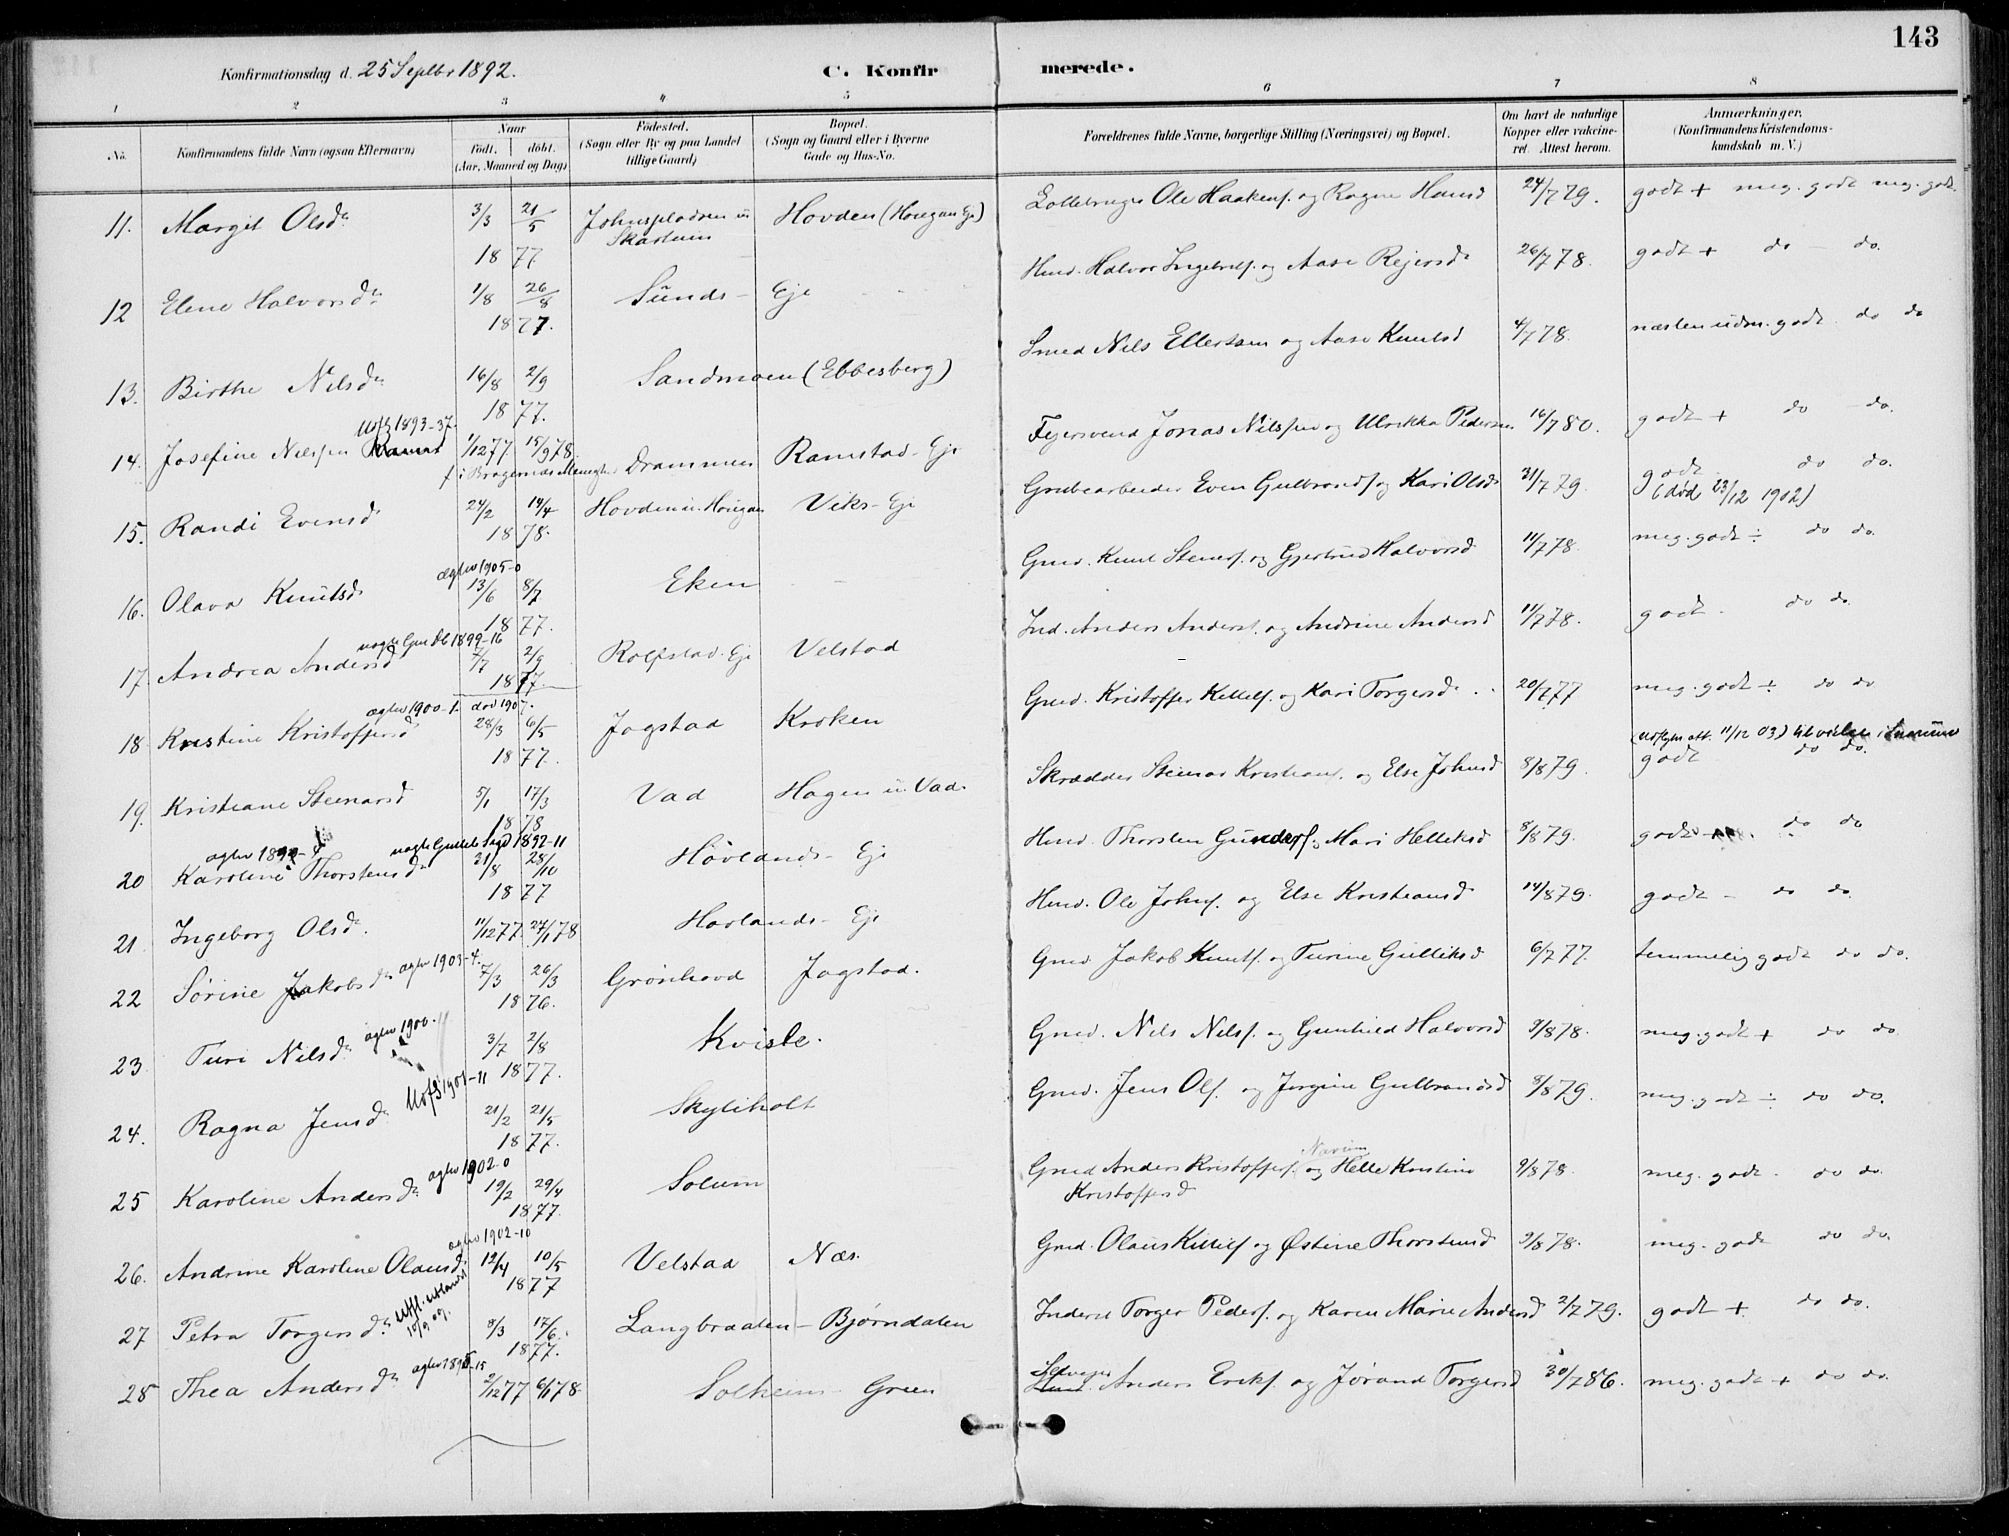 143
Konfirmationsdag d. 25 Septbr 1892.
C. Konfirmerede.
1 2 3 4 5 6 7 8
No. Konfirmandens fulde Navn (ogsaa Efternavn) Naar født. døbt. (Aar, Maaned og Dag) Fødested. (Sogn eller By og paa Landet tillige Gaard) Bopæl. (Sogn og Gaard eller i Byerne Gade og Hus-No. Forældrenes fulde Navne, borgerlige Stilling (Næringsvei) og Bopæl. Om havt de naturlige Kopper eller vakcineret. Attest herom. Anmærkninger. (Konfirmandens Kristendomskundskab m. V.)
11. Margit Olsdr 3/3 21/5 1877 Johnspladsen u Skartum Hovden (Hougan Eje) Ole Haakens. og Ragne Hansd 24/7 79. godt + meg. godt meg. godt
12 Elene Halvorsdr 1/8 26/8 1877. Sunds - Eje Hmd. Halvor Ingebrets. og Aase Rejersdr 26/7 78. godt + do - do.
13. Birthe Nilsdr 16/8 2/9 1877. Sandmoen (Ebbesberg) Smed Nils Ellertsen og Aase Knutsd 4/7 78. næsten udm. godt do do
Udfl 1893-37.
14. Josefine Nilssen 1/12 77 15/9 78. Drammen Ramstad-Eje Jonas Nilssen og Ulrikka Pedersen 16/7 80. godt + do do.
f i Bragernæs Menighed
15. Randi Evensd 24/2 14/4 1878. Hovden u. Hougan Viks-Eje Grubearbeider Even Gulbrands. og Kari Olsdr 31/7 79. godt do do.
(død 23/12 1902)
ægtev 1905-0
16. Olava Knutsdr 13/6 8/7 1877. Eken Gmd. Knut Steners. og Gjertrud Halvorsd 11/7 78. meg. godt ÷ do do.
1899-16
17 Andrea Andersd 7/7 2/9 1877. Rolfstad-Eje Velstad Ind. Anders Anders. og Andrine Andersd 11/7 78. godt. do do.
ægtev 1900-1. død 1907.
18 Kristine Kristoffersd 28/3 6/5 1877. Jogstad Kroken Gmd. Kristoffer Kittels. og Kari Torgersdr 20/7 77 meg. godt ÷ do do
19. Kristiane Steenarsd 5/1 17/3 1878 Vad Hagen u. Vad. Skrædder Steinar Kristians. og Else Johnsd 8/8 79. godt do do.
1892-11
20 Karoline Thorstensdr 31/8 28/10 1877 Høvlands - Eje Hmd. Thorsten Gunders. og Mari Helleksd 8/8 79. godt do do
21 Ingeborg Olsdr. 11/12 77. 27/1 78 Hovlands - Eje Hmd. Ole Johns. og Else Kristiansdr 14/8 79. godt - do do.
22 Sørine Jakobsdr ægtev 1903-4. 7/3 26/3 1876. Grönhovd Jogstad. Gmd Jakob Knuts. og Turine Gulliksd 6/7 77. temmelig godt do do.
23 Turi Nilsdr ægtev 1900-11 3/7 2/8 1877. Kvisle. Gmd. Nils Nils. og Gunhild Halvorsd 9/8 78. meg. godt + do do.
24. Ragna Jensdr Udfl 1901-11 21/2 21/5 1877. Skyliholt Gmd. Jens Ols. og Jørgine Gulbrandsd 8/8 79. meg. godt ÷ do do.
25 Karoline Andersdr ægtev 1902-0 19/2 29/4 1877. Solum Gmd Anders Kristoffers. og Helle Kristine Kristoffersd 9/8 78. meg. godt. do do.
ægtev 1902-10
26. Andrine Karoline Olausdr 12/4 10/5 1877 Velstad Næs. Gmd. Olaus Kittils. og Østine Thorstensd 9/8 78. meg. godt do do.
27 Petra Torgersdr Utfl. utlandet 10/9 09. 8/3 17/6. 1877. Langbraaten - Bjørndalen Inderst Torger Peders. og Karen Marie Andersd 2/7 79. godt + do do.
28 Thea Andersdr ægtev 1895-15 2/12 77 6/1 78. Solheim - Gren Selveier Anders Eriks. og Jørand Torgersd 30/7 86. meg. godt + do do.